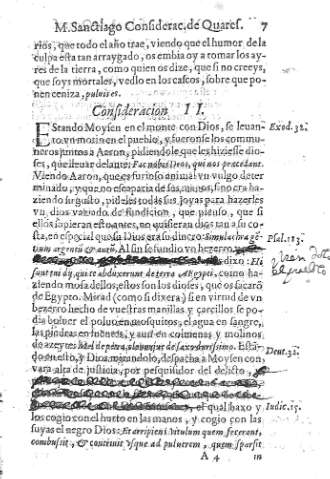 M. Sanctiago Considerac. de Quares. 7
rios, que todo el año trae, viendo que el humor de la
culpa esta tan arraygado, os embia oy a tomar los ay-
res de la tierra, como quien os dize, que si no creeys,
que soys mortales, vedlo en los cascos, sobre que po-
nen ceniza, pulvis es.
Consideracion II.
EStando Moysen en el monte con Dios, se levan-
to vn motin en el pueblo, y fueronse los commu-
neros juntos a Aaron, pidiendole, que les hiziesse dio-
ses, que llevar delante: Fac nobis Deos, qui nos praecedant.
Viendo Aaron, que es furioso animal vn vulgo deter
minado, y que no escaparia de sus manos, sino era ha-
ziendo su gusto, pideles todas sus joyas para hazerles
vn dios vaziado de fundicion, que pienso, que si
ellos supieran esto antes, no quisieran dios tan a su co-
sta, en especial que su Dios era su dinero: Simulachra gē-
tium argentū & aurū. Al fin se fundio vn bezerro,
dixo: Hi
sunt tui dij, qui te abduxerunt de terra Aegypti, como ha-
ziendo mofa dellos; estos son los dioses, que os sacarō
de Egypto. Mirad (como si dixera) si en virtud de vn
bezerro hecho de vuestras manillas y çarcillos se po-
dia bolver el polvo en mosquitos, el agua en sangre,
las piedras en
de azeyte: Estā-
do en esto, y Dios mirandolo, despacha a Moysen con
vara alta de justicia, por pesquisidor del delicto,
el qual baxo y
los cogio con el hurto en las manos, y cogio con las
suyas el negro Dios: Et arripiens vitulum quem fecerant,
combussit, & contrivit vsque ad pulverem, quem sparsit
A 4 in
Exod. 32.
Psal. 113.
Deut. 32.
Iudic. 15.